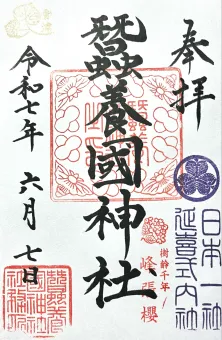 奉拝
日本一社
延喜式内社
蠶養國神社
樹齢千年
峰張櫻
令和七年 六月 七日